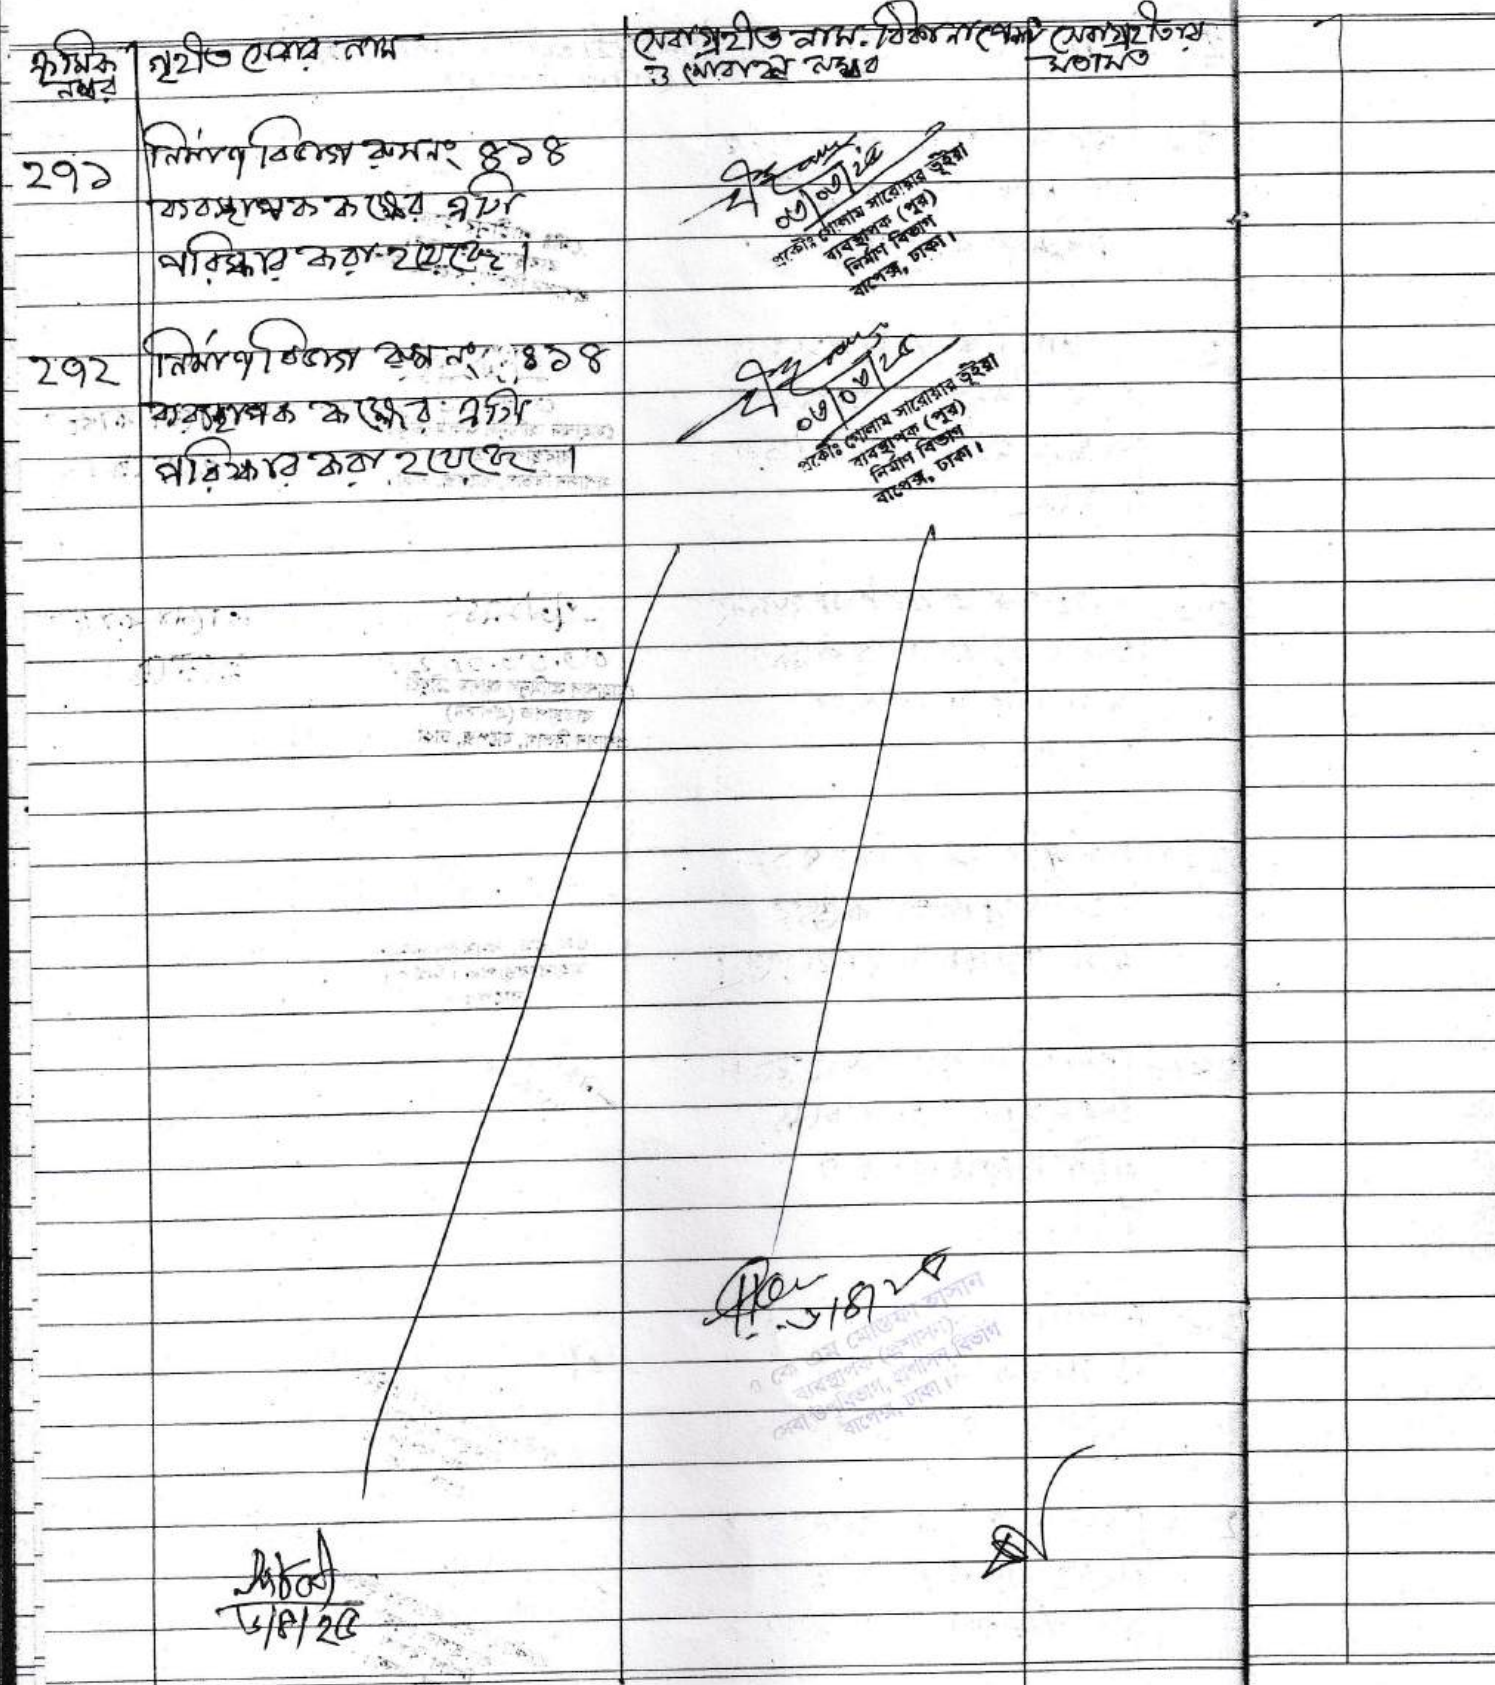 ক্রমিক নম্বর
গৃহীত সেবার নাম
সেবাগ্রহীত নাম. ঠিকানা পেশা
ও মোবাইল নম্বর
সেবাগ্রহীতার
মতামত
২৭১
নির্মাণ বিভাগ রুম নং ৪১৪
ব্যবস্থাপক কক্ষের এসি
পরিষ্কার করা হয়েছে।
০৩/০৩/২৫
প্রকৌঃ গোলাম সারোয়ার ভূঁইয়া
ব্যবস্থাপক (পুর)
নির্মাণ বিভাগ
বাপেক্স, ঢাকা।
২৭২
নির্মাণ বিভাগ রুম নং ৪১৪
ব্যবস্থাপক কক্ষের এসি
পরিষ্কার করা হয়েছে।
০৩/০৩/২৫
প্রকৌঃ গোলাম সারোয়ার ভূঁইয়া
ব্যবস্থাপক (পুর)
নির্মাণ বিভাগ
বাপেক্স, ঢাকা।
কে এম মোস্তফা হাসান
ব্যবস্থাপক (প্রশাসন)
সেবা উপবিভাগ, প্রশাসন বিভাগ
বাপেক্স, ঢাকা।
৩/৪/২৫